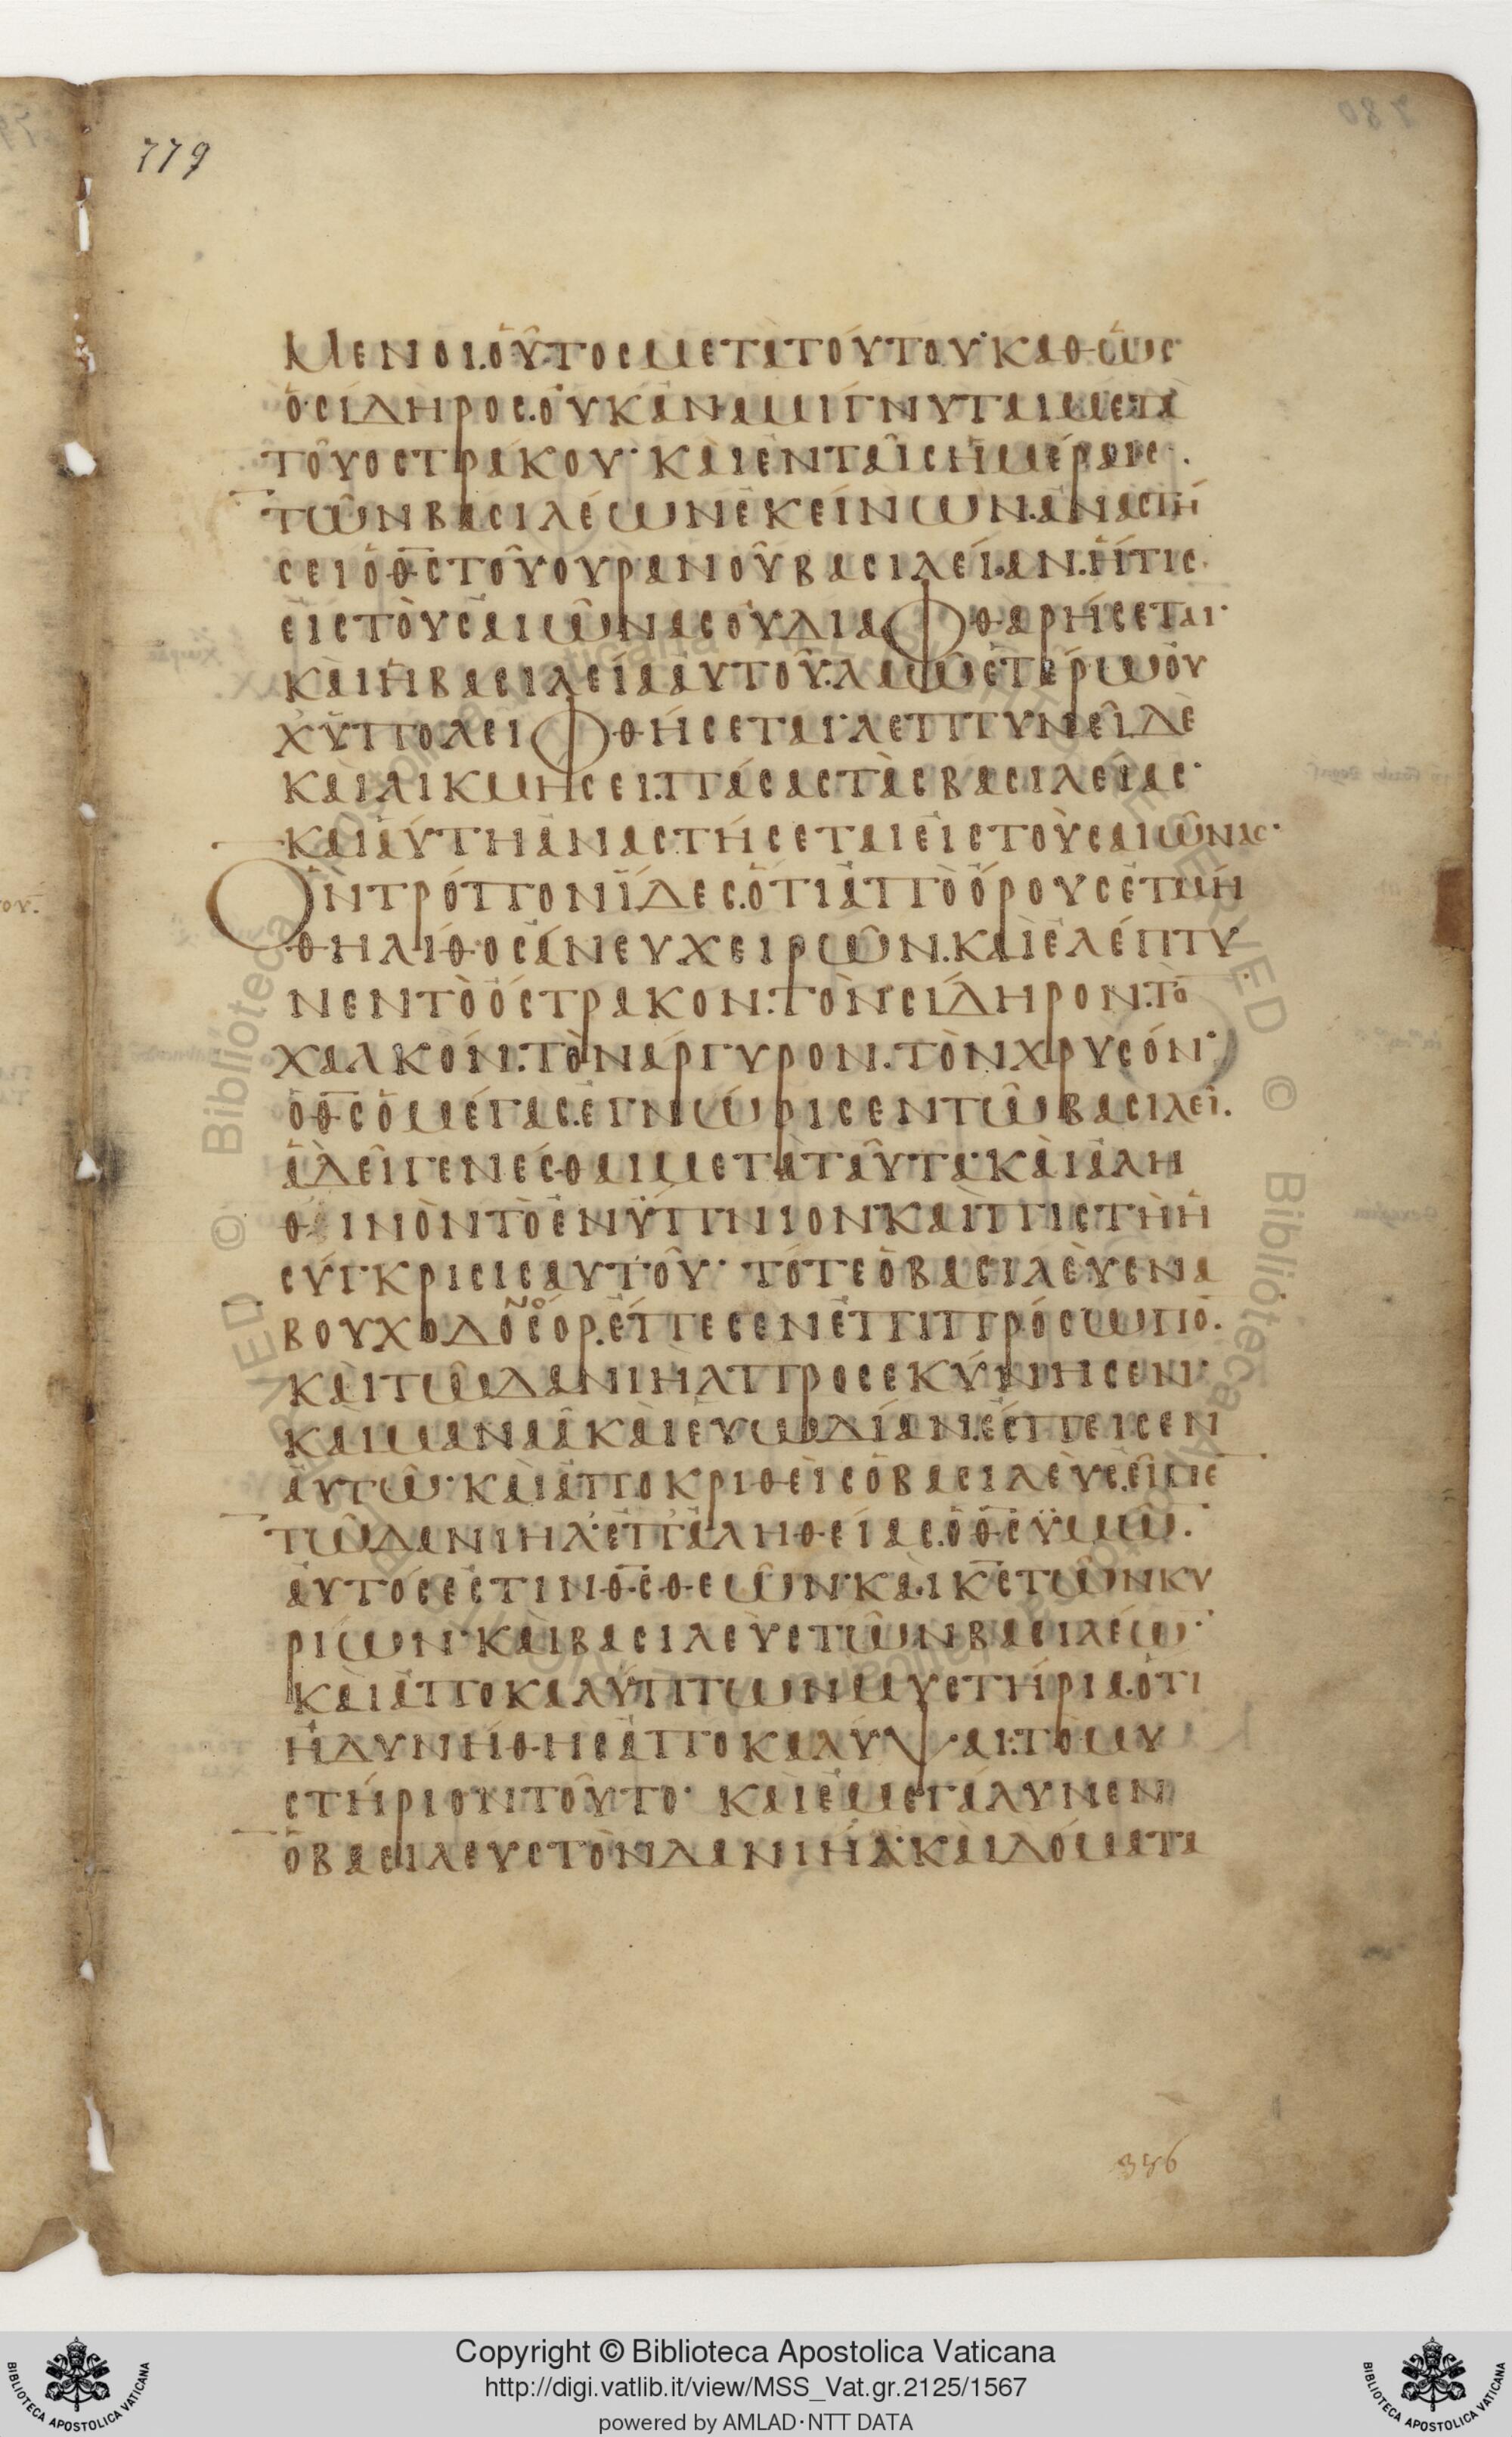 779
μενοι.οὗτος μετὰ τούτου· καθὼς
ὁ σίδηρος.οὐκ ἀναμίγνυται μετὰ
τοῦ οστράκου· καὶ ἐν ταῖς ἡμέραις.
τῶν βασιλέων ἐκείνων.ἀναστή
σει ὁ θ̅ς̅ τοῦ ουρανοῦ βασιλείαν.ἥτις
εἰς τοὺς αἰῶνας οὐ διαφθαρήσεται·
καὶ ἡ βασιλεία αὐτοῦ.λαῶ ἑτέρω οὐ
χ ὑπολειφθήσεται· λεπτυνεῖ δὲ
καὶ λικμησει.πάσας τὰς βασιλείας·
καὶ αύτη ἀναστήσεται εἰς τοὺς αἰῶνας·
Ὃν τρόπον ΐδες.ὅτι ἀπὸ ὄρους ἐτμή
θη λίθος άνευ χειρῶν.καὶ ἐλέπτυ
νεν τὸ όστρακον.τὸν σίδηρον.τὸ̅
χαλκόν.τὸν αργυρον.τὸν χρυσόν·
ὁ θ̅ς̅ ὁ μέγας.ἐγνώρισεν τῶ βασιλεῖ.
ἃ δεῖ γενέσθαι μετὰ ταῦτα· καὶ ἀλη
θινὸν τὸ ἐνΰπνιον· καὶ πιστὴ ἡ
σύγκρισις αυτοῦ· τότε ὁ βασιλεὺς να
βουχοδονόσορ.ἔπεσεν ἐπὶ πρόσωπο̅.
καὶ τῶ δανιὴλ προσεκύνησεν·
καὶ μαναὰ καὶ ἐυωδίαν.ἔσπεισεν
ἀυτῶ· καὶ ἀποκριθεὶς ὁ βασιλεὺς.εἶπε̅
τῶ δανιηλ· ἐπ' ἀληθείας.ὁ θ̅ς̅ ϋμῶ̅.
ἀυτός ἐστιν θ̅ς̅ θεῶν· καὶ κ̅ς̅ τῶν κυ
ρίων· καὶ βασιλεὺς τῶν βασιλέω̅·
καὶ ἀποκαλύπτων μυστήρια.ὅτι
ἠδυνήθης ἀποκαλύψαι.τὸ μυ
στήριον τοῦτο· καὶ ἐμεγάλυνεν
ὁ βασιλευς τὸν δανιήλ· καὶ δόματα
356
Copyright © Biblioteca Apostolica Vaticana
http://digi.vatlib.it/view/MSS_Vat.gr.2125/1567
powered by AMLAD·NTT DATA
BIBLIOTECA APOSTOLICA VATICANA
BIBLIOTECA APOSTOLICA VATICANA